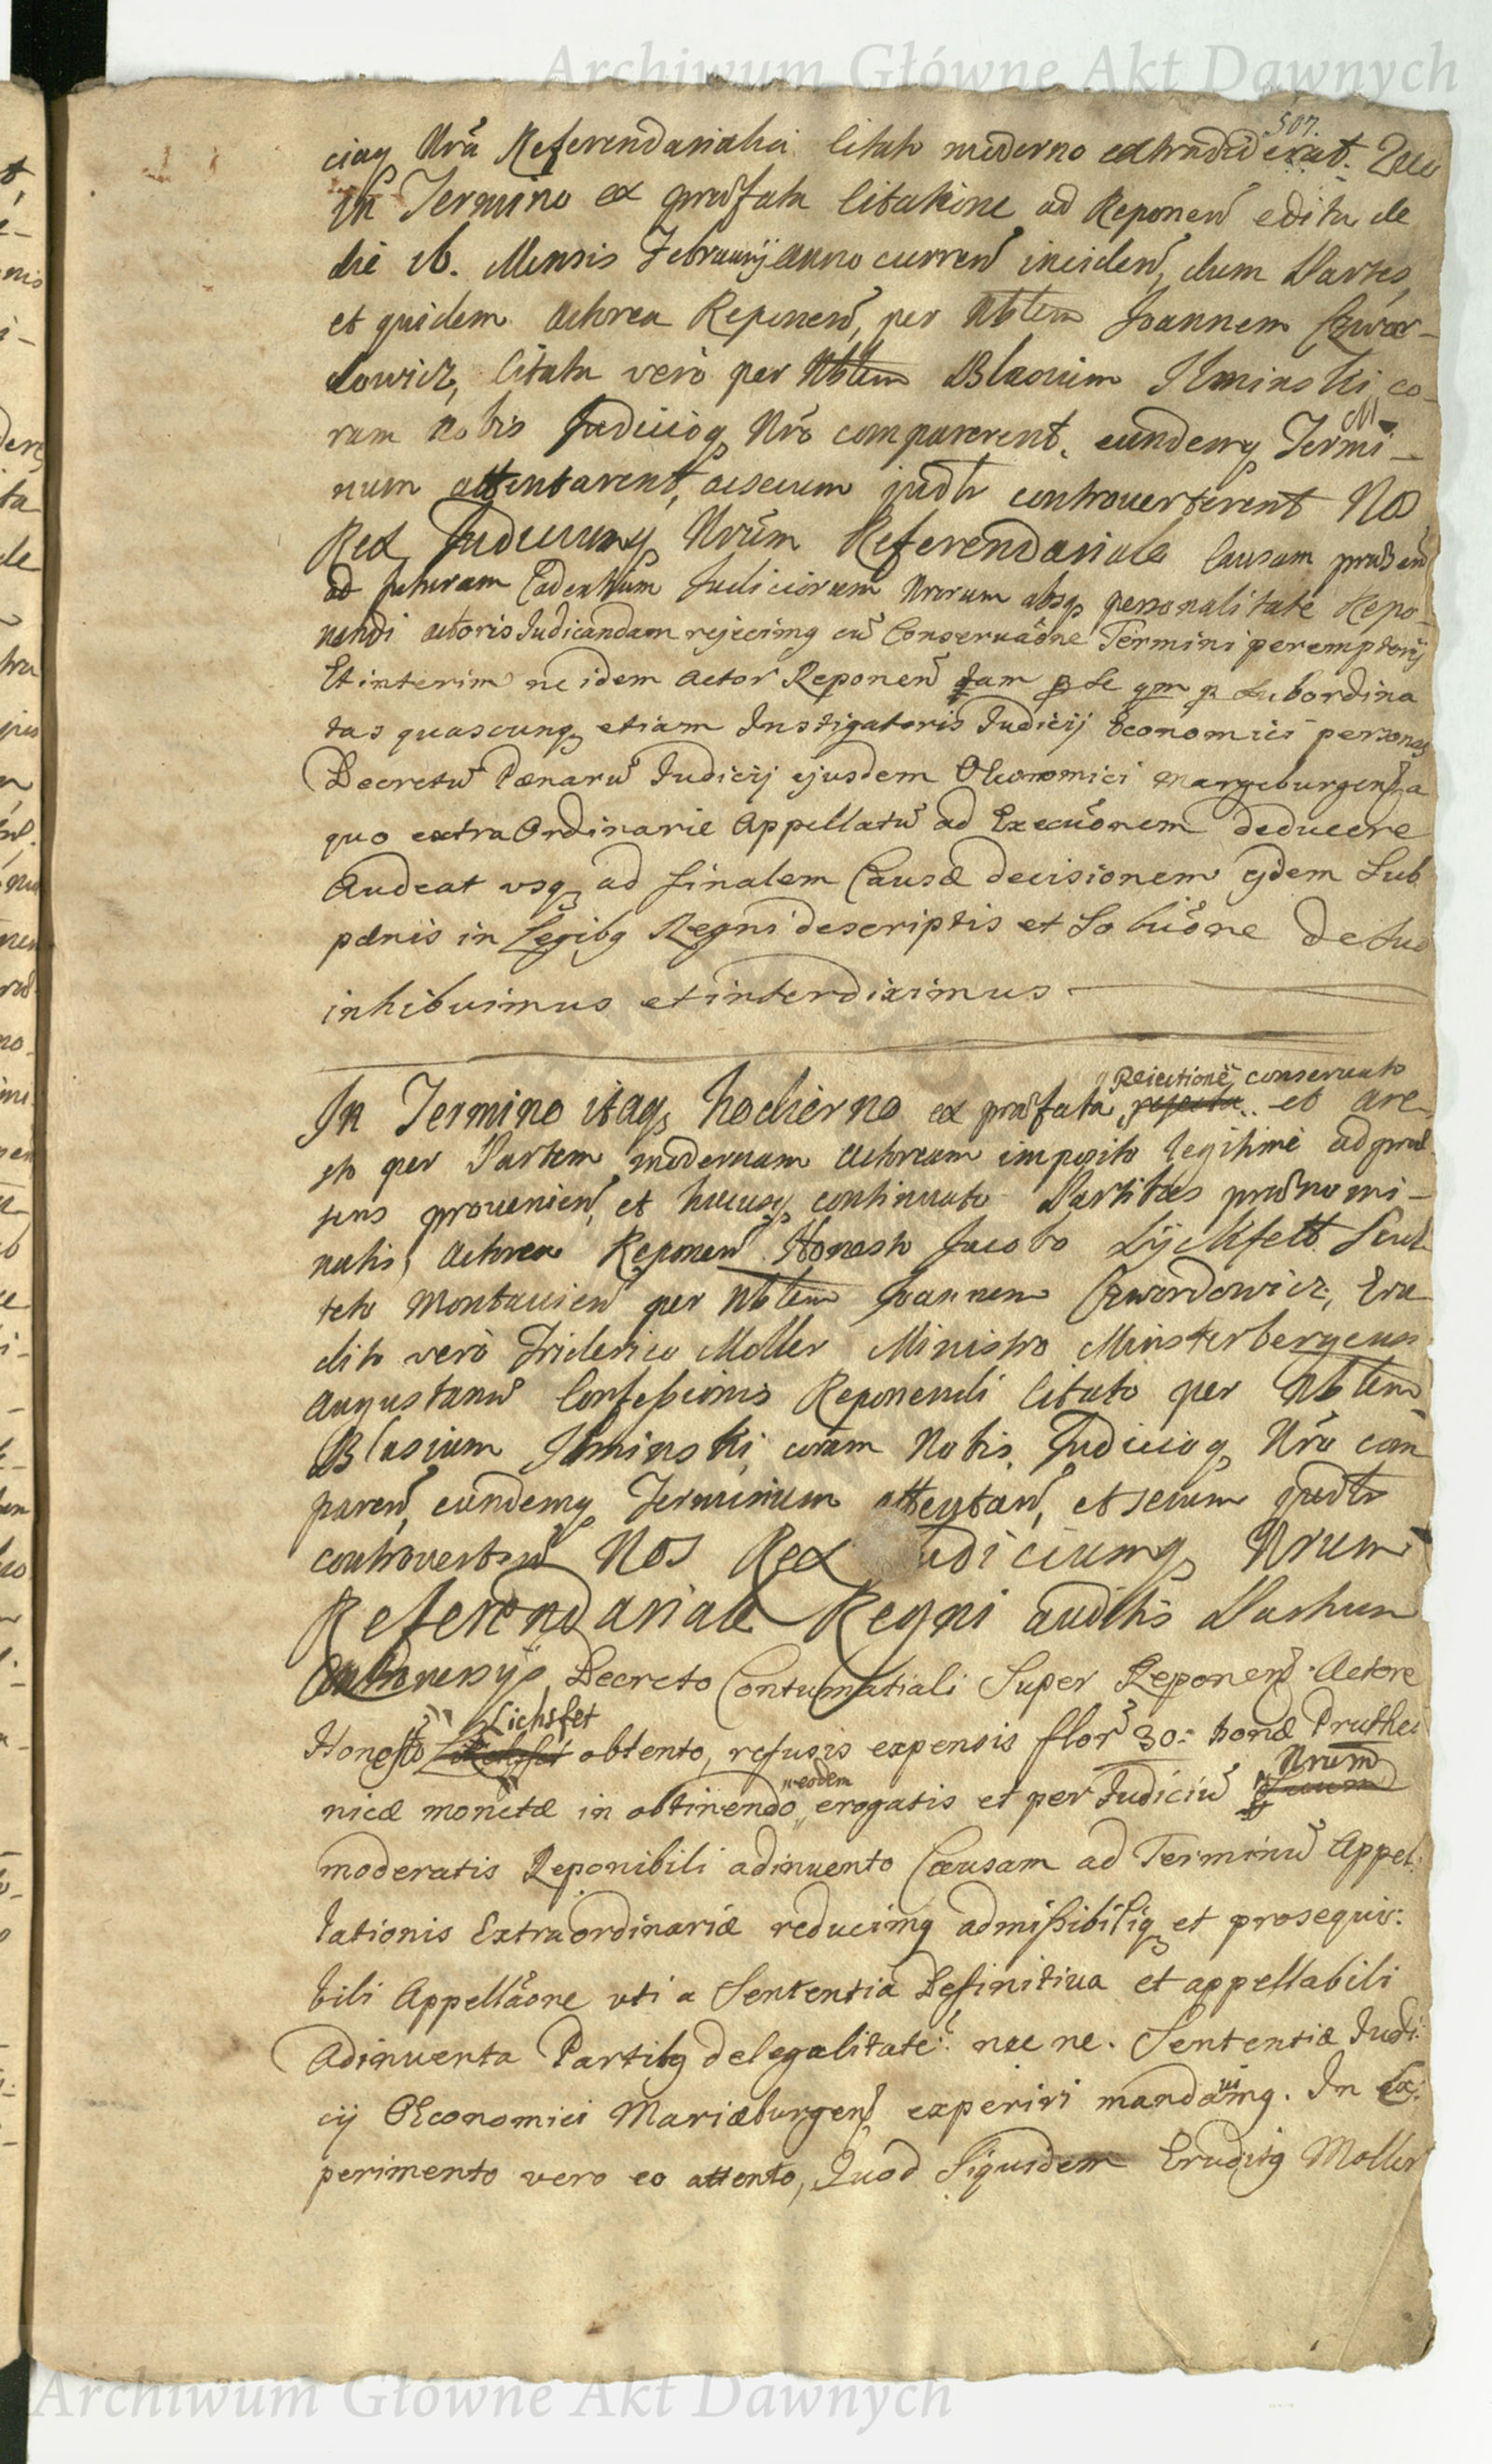 Archiwum Główne Akt Dawnych
507.
ciaq Nrã Referendarialia Citato moderno extradiderat. Quo
in Termino ex præfata Citatione ad Reponen edita de
die 16. Mensis Februarij anno curren inciden, dum Partes,
et quidem Actorea Reponen, per Nblem Joannem Czwor-
dowicz, Citata verò per Nblem Blasium Ilminski co-
ram nobis Judicioq Nrõ comparerent, eundemq Termi-
num attentarent, ac secum judr controverterent Nos
Rex Judiciumq Nrum Referendariale Causam præsen
ad futuram Cadentiam Judiciorum Nrorum absq personalitate Repo-
nendi actoris Judicandam rejecimq cũ Conservaõne Termini peremptorij
Et interim ne idem Actor Reponen tam p se qm p Subordina
tas quascunq etiam Instigatoris Judicij Economici personas
Decretũ Pænarũ Judicij ejusdem OEconomici Margeburgens a
quo extra Ordinarie Appellatũ ad Execuõnem deducere
Audeat usq ad finalem Causæ decisionem ejdem Sub
pænis in Legibq Regni descriptis et Soluõne
inhibuimus et interdiximus
In Termino itaq hodierno ex præfata Rejectione, conservato et are-
sto per Partem modernam Actoream imposito legitimè ad præ-
sens provenien, et hucusq continuato Partibus prænomi-
natis, Actorea Reponen Honesto Jacobo Lyckfett Scul-
teto Montavien per Nblem Joannem Czwordowicz, Eru-
dito verò Friderico Moller Ministro Minsterbergens
Augustanæ Confessionis Reponendi Citato per Nblem
Blasium Ilminski, coram Nobis, Judicioq Nrõ com
paren, eundemq Terminum attentan, et secum judr
controverten Nos Rex Judiciumq Nrum
Referendariale Regni auditis Partium
Controversijs, Decreto Contumatiali Super Reponen Actore
Honesto Lichsfet obtento, refusis expensis flor 30: bonæ Pruthe-
nicæ monetæ in obtinendo eodem erogatis et per Judiciũ Nrum
moderatis Reponibili adinvento Causam ad Terminũ Appel-
lationis Extraordinariæ reducimq admissibiliq et prosequi-
bili Appellãone uti a Sententia Definitiva et appellabili
Adinventa Partibq de legalitate nec ne Sententiæ Judi-
cij OEconomici Mariæburgens experiri mandavimq. In Ex-
perimento vero eo attento, Quod Siquidem Eruditq Moller
Archiwum Główne Akt Dawnych